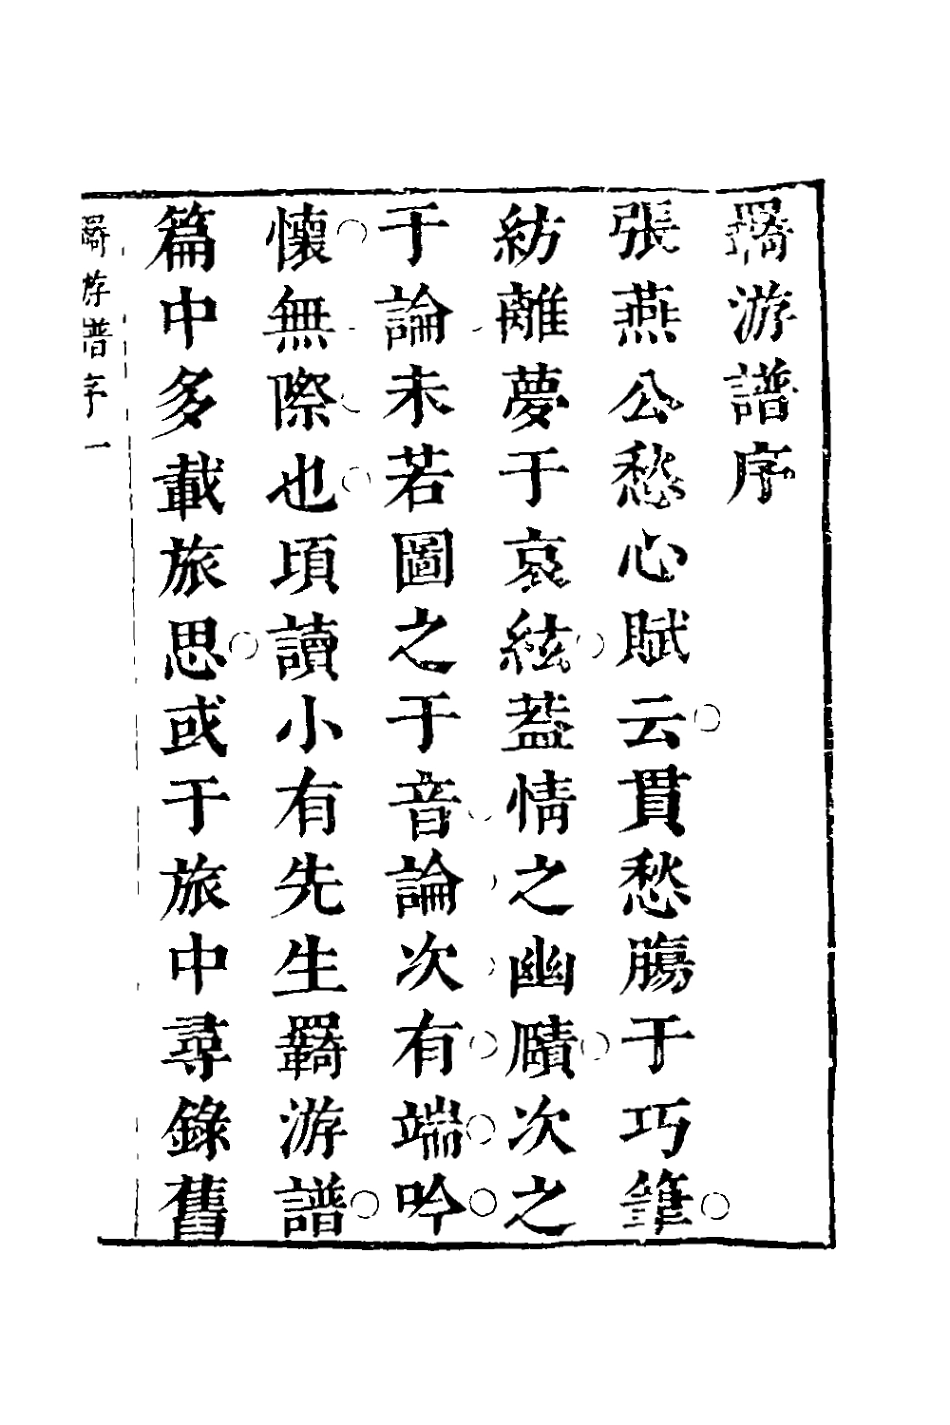 羇游譜序
張燕公愁心賦云貫愁膓于巧筆
紡離夢于哀絃葢情之幽賾次之
于論未若圖之于音論次有端吟
懷無際也頃讀小有先生羇游譜
篇中多載旅思或于旅中尋錄舊
羇游譜序一